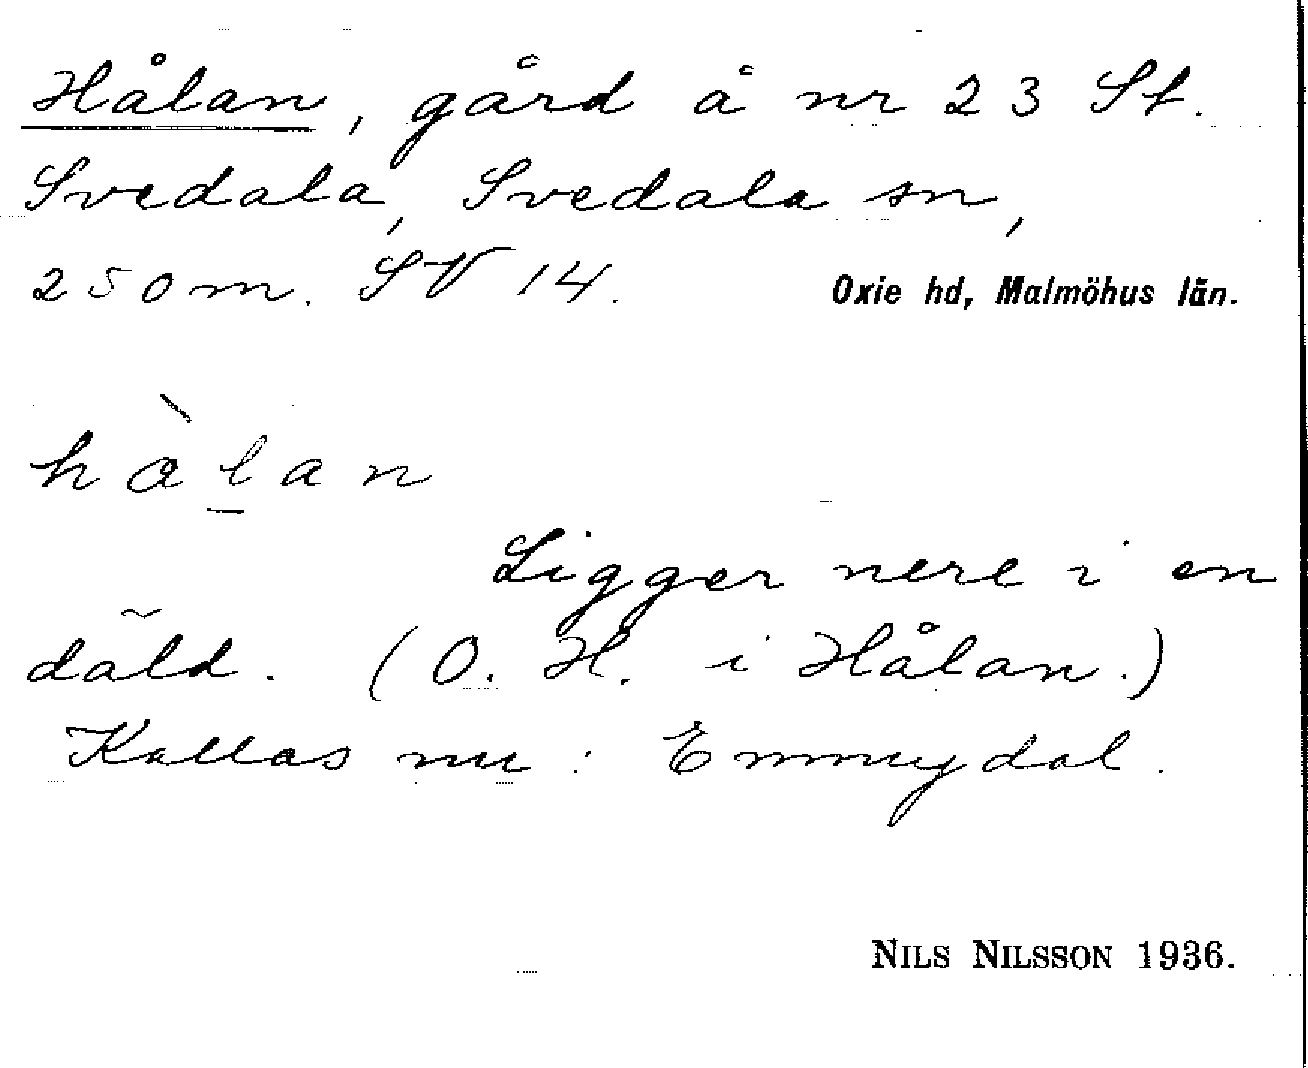 Hålan, gård å nr 23 St.
Svedala, Svedala sn,
250 m. SV 14. Oxie hd, Malmöhus län.
hàlan
Ligger nere i en
däld. (O. H. i Hålan.)
Kallas nu: Emmydal.
NILS NILSSON 1936.